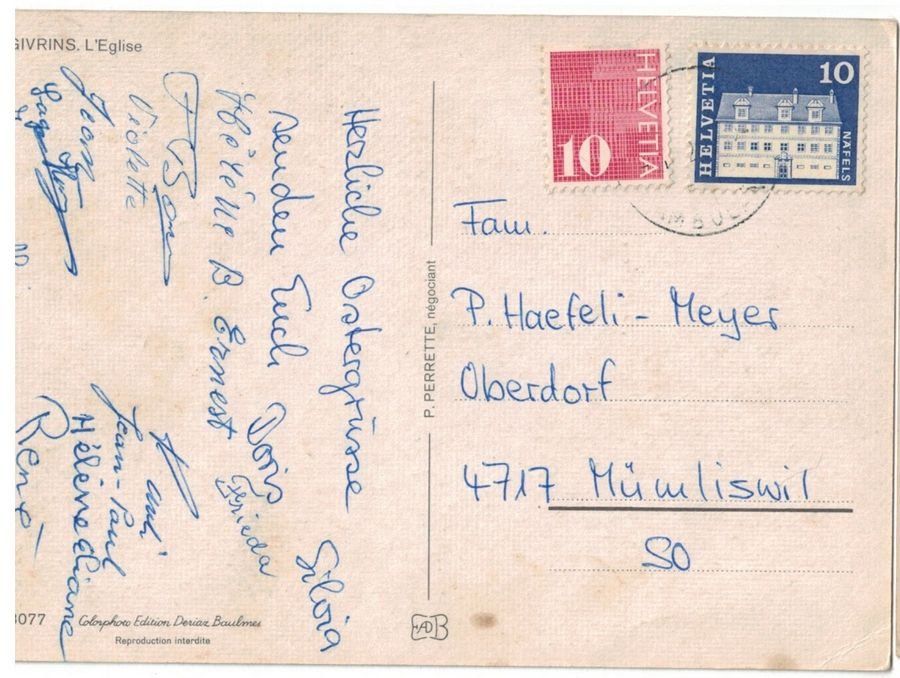 GIVRINS. L'Eglise
Herzliche Ostergrüsse
senden Euch Doris Silvia
Hélène B. Ernest Frieda
Violette
Jean
Jean-Paul
Hélène Eliane
René
3077
Colorphoto Edition Deriaz Baulmes
Reproduction interdite
P. PERRETTE, négociant
HELVETIA
10
HELVETIA
10
NÄFELS
Fam.
P. Haefeli - Meyer
Oberdorf
4717 Mümliswil
SO